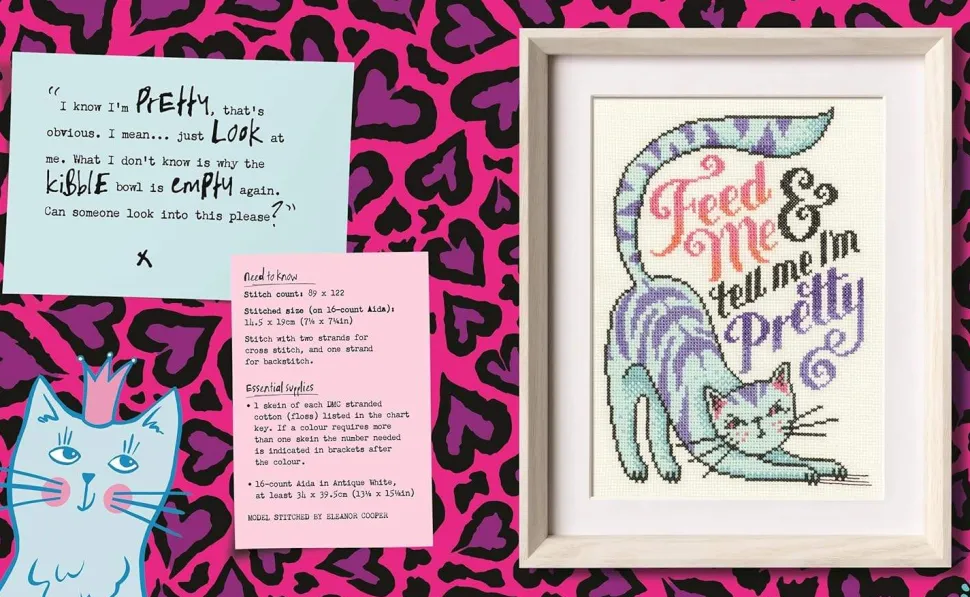 “I know I'm PrEtty, that's
obvious. I mean... just LOOK at
me. What I don't know is why the
kiBBlE bowl is emPty again.
Can someone look into this please?”
x
need to know
Stitch count: 89 x 122
Stitched size (on 16-count Aida):
14.5 x 19cm (7⅝ x 7¼in)
Stitch with two strands for
cross stitch, and one strand
for backstitch.
Essential supplies
• 1 skein of each DMC stranded
cotton (floss) listed in the chart
key. If a colour requires more
than one skein the number needed
is indicated in brackets after
the colour.
• 16-count Aida in Antique White,
at least 34 x 39.5cm (13¼ x 15¼in)
MODEL STITCHED BY ELEANOR COOPER
Feed
Me &
tell me I'm
Pretty